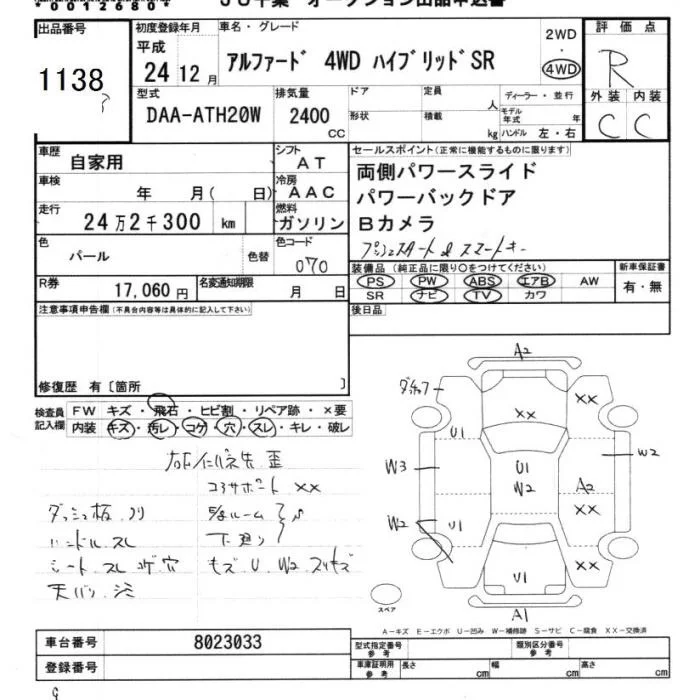 00126804
JU千葉 オークション出品申込書
出品番号
1138
初度登録年月
平成
24 12 月
車名・グレード
アルファード 4WD ハイブリッドSR
2WD
・
4WD
評価点
R
外装 内装
C C
型式
DAA-ATH20W
排気量
2400
CC
ドア
定員
人
形状
積載
kg
ディーラー・並行
モデル年式
年
ハンドル 左・右
車歴
自家用
シフト
AT
車検
年 月( 日)
冷房
AAC
走行
24万2千300 km
燃料
ガソリン
色
パール
色替
色コード
070
R券
17,060 円
名変通知期限
月 日
セールスポイント(正常に機能するものに限ります)
両側パワースライド
パワーバックドア
Bカメラ
プッシュスタート & スマートキー
装備品(純正品に限り○をつけてください)
PS PW ABS エアB AW
SR ナビ TV カワ
新車保証書
有・無
後日品
注意事項申告欄(不具合内容等は具体的に記入して下さい)
修復歴 有〔箇所 〕
検査員記入欄
FW キズ・飛石・ヒビ割・リペア跡・×要
内装 キズ・汚レ・コゲ・穴・スレ・キレ・破レ
コアサポート ××
ダッシュ板
ハンドル スレ
シート スレ コゲ 穴
天バリ
ルーム
下廻り
キズ U W2
A2
××
××
U1
U1
W2
W3
W2
A2
××
W2
U1
U1
××
A1
スペア
A-キズ E-エクボ U-凹み W-補修跡 S-サビ C-腐食 XX-交換済
車台番号
8023033
登録番号
型式指定番号
参考
類別区分番号
参考
車庫証明用
参考
長さ
cm
幅
cm
高さ
cm